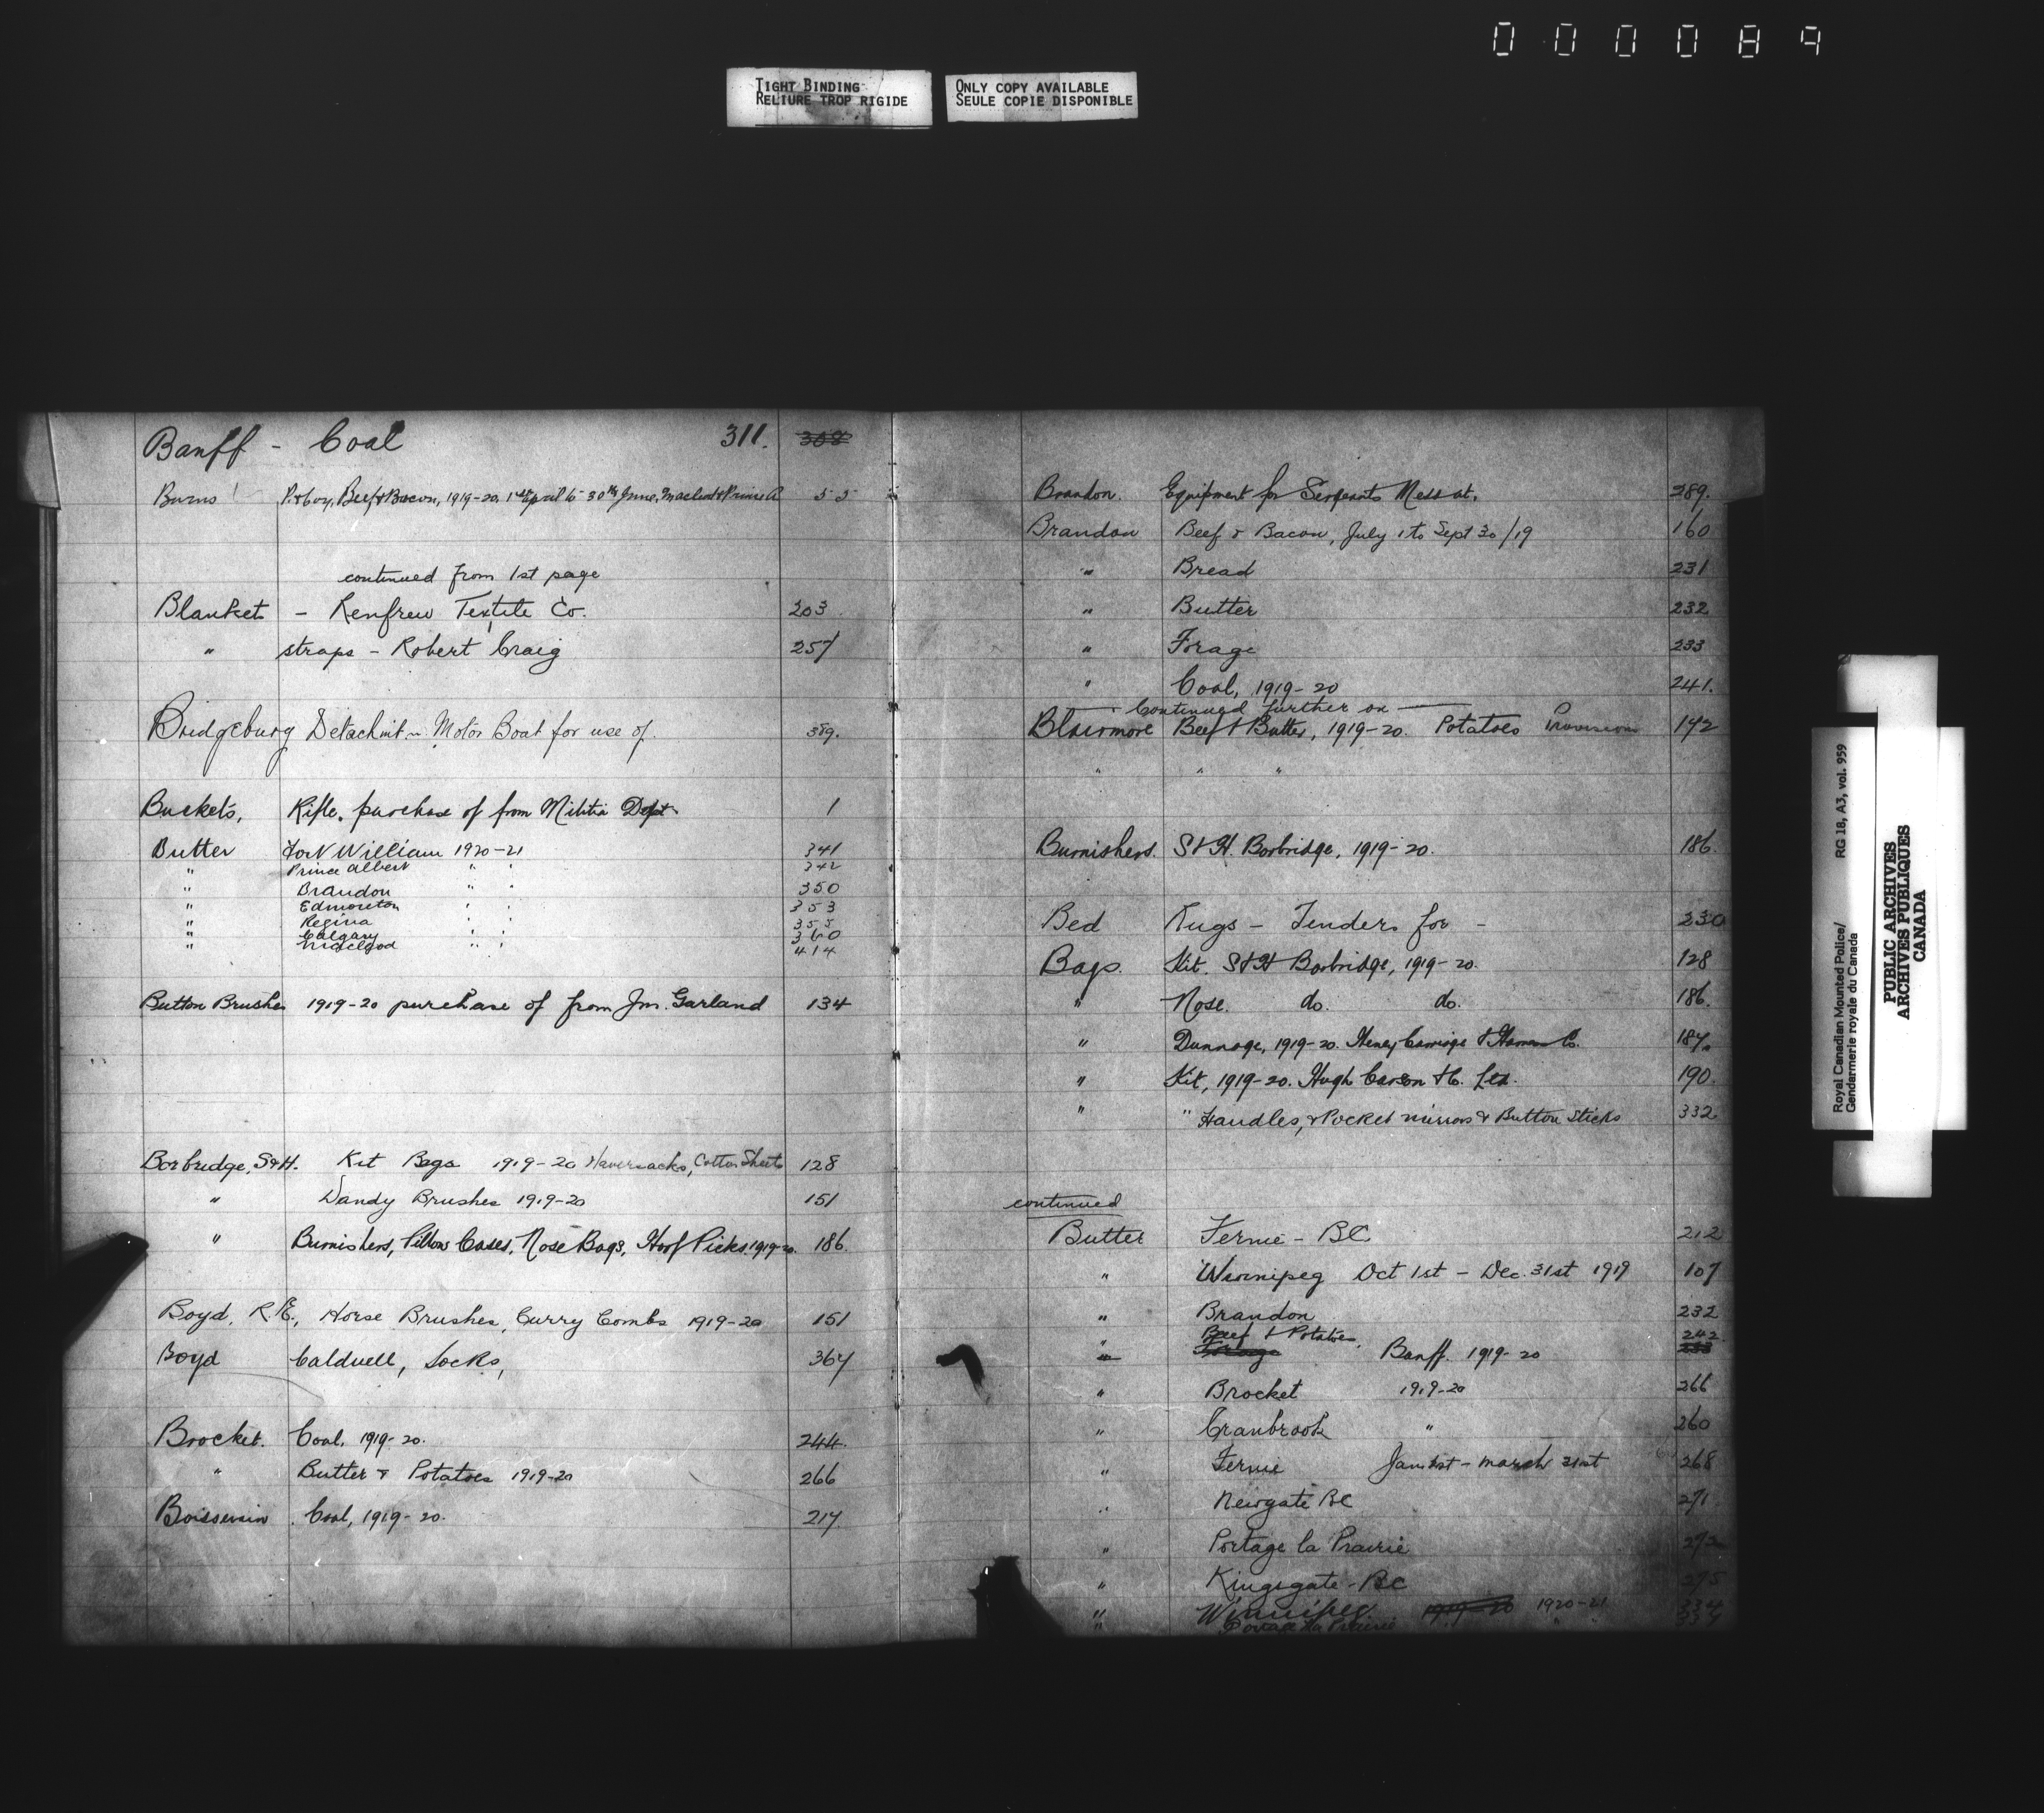 000089
TIGHT BINDING
RELIURE TROP RIGIDE
ONLY COPY AVAILABLE
SEULE COPIE DISPONIBLE
Banff - Coal 311. 308
Burns P. & Coy, Beef & Bacon, 1919-20, 1st April to 30th June, Macleod & Prince A 55
continued from 1st page
Blanket - Renfrew Textile Co. 203
" straps - Robert Craig 257
Bridgeburg Detachmt - Motor Boat for use of. 389.
Buckets, Rifle, purchase of from Militia Dept 1
Butter Fort William 1920-21 341
" Prince Albert " " 342
" Brandon " " 350
" Edmonton " " 353
" Regina " " 355
" Calgary " " 360
" Macleod " " 414
Button Brushes 1919-20 purchase of from Jm. Garland 134
Borbridge, S&H. Kit Bags 1919-20 Haversacks, Cotton Sheets 128
" Dandy Brushes 1919-20 151
" Burnishers, Pillow Cases, Nose Bags, Hoof Picks, 1919-20. 186
Boyd, R.E., Horse Brushes, Curry Combs 1919-20 151
Boyd Caldwell, Socks, 367
Brocket. Coal, 1919-20. 244
" Butter & Potatoes 1919-20 266
Boissevain Coal, 1919-20. 217
Brandon. Equipment for Sergeants Mess at. 289.
Brandon Beef & Bacon, July 1 to Sept 30/19 160
" Bread 231
" Butter 232
" Forage 233
" Coal, 1919-20 241.
Continued further on
Blairmore Beef & Butter, 1919-20. Potatoes Provisions 142
" " "
Burnishers. S&H. Borbridge, 1919-20. 186.
Bed Rugs - Tenders for - 230
Bags. Kit. S&H Borbridge, 1919-20. 128
" Nose. do. do. 186.
" Dunnage, 1919-20. Heney Carriage & Harness Co. 187.
" Kit, 1919-20. Hugh Carson & Co. Ltd. 190.
" " Handles, & Pocket mirrors & Button Sticks 332
continued
Butter Fernie - BC 212
" Winnipeg Oct 1st - Dec. 31st 1919 107
" Brandon 232
" Beef & Potatoes, 242
" Forage Banff. 1919-20 233
" Brocket 1919-20 266
" Cranbrook " 260
" Fernie Jan 1st - March 31st 268
" Newgate BC 271
" Portage la Prairie 272
" Kingsgate - BC 275
" Winnipeg 1919-20 1920-21 334
" Portage la Prairie " " 337
Royal Canadian Mounted Police/
Gendarmerie royale du Canada
RG 18, A3, vol. 959
PUBLIC ARCHIVES
ARCHIVES PUBLIQUES
CANADA